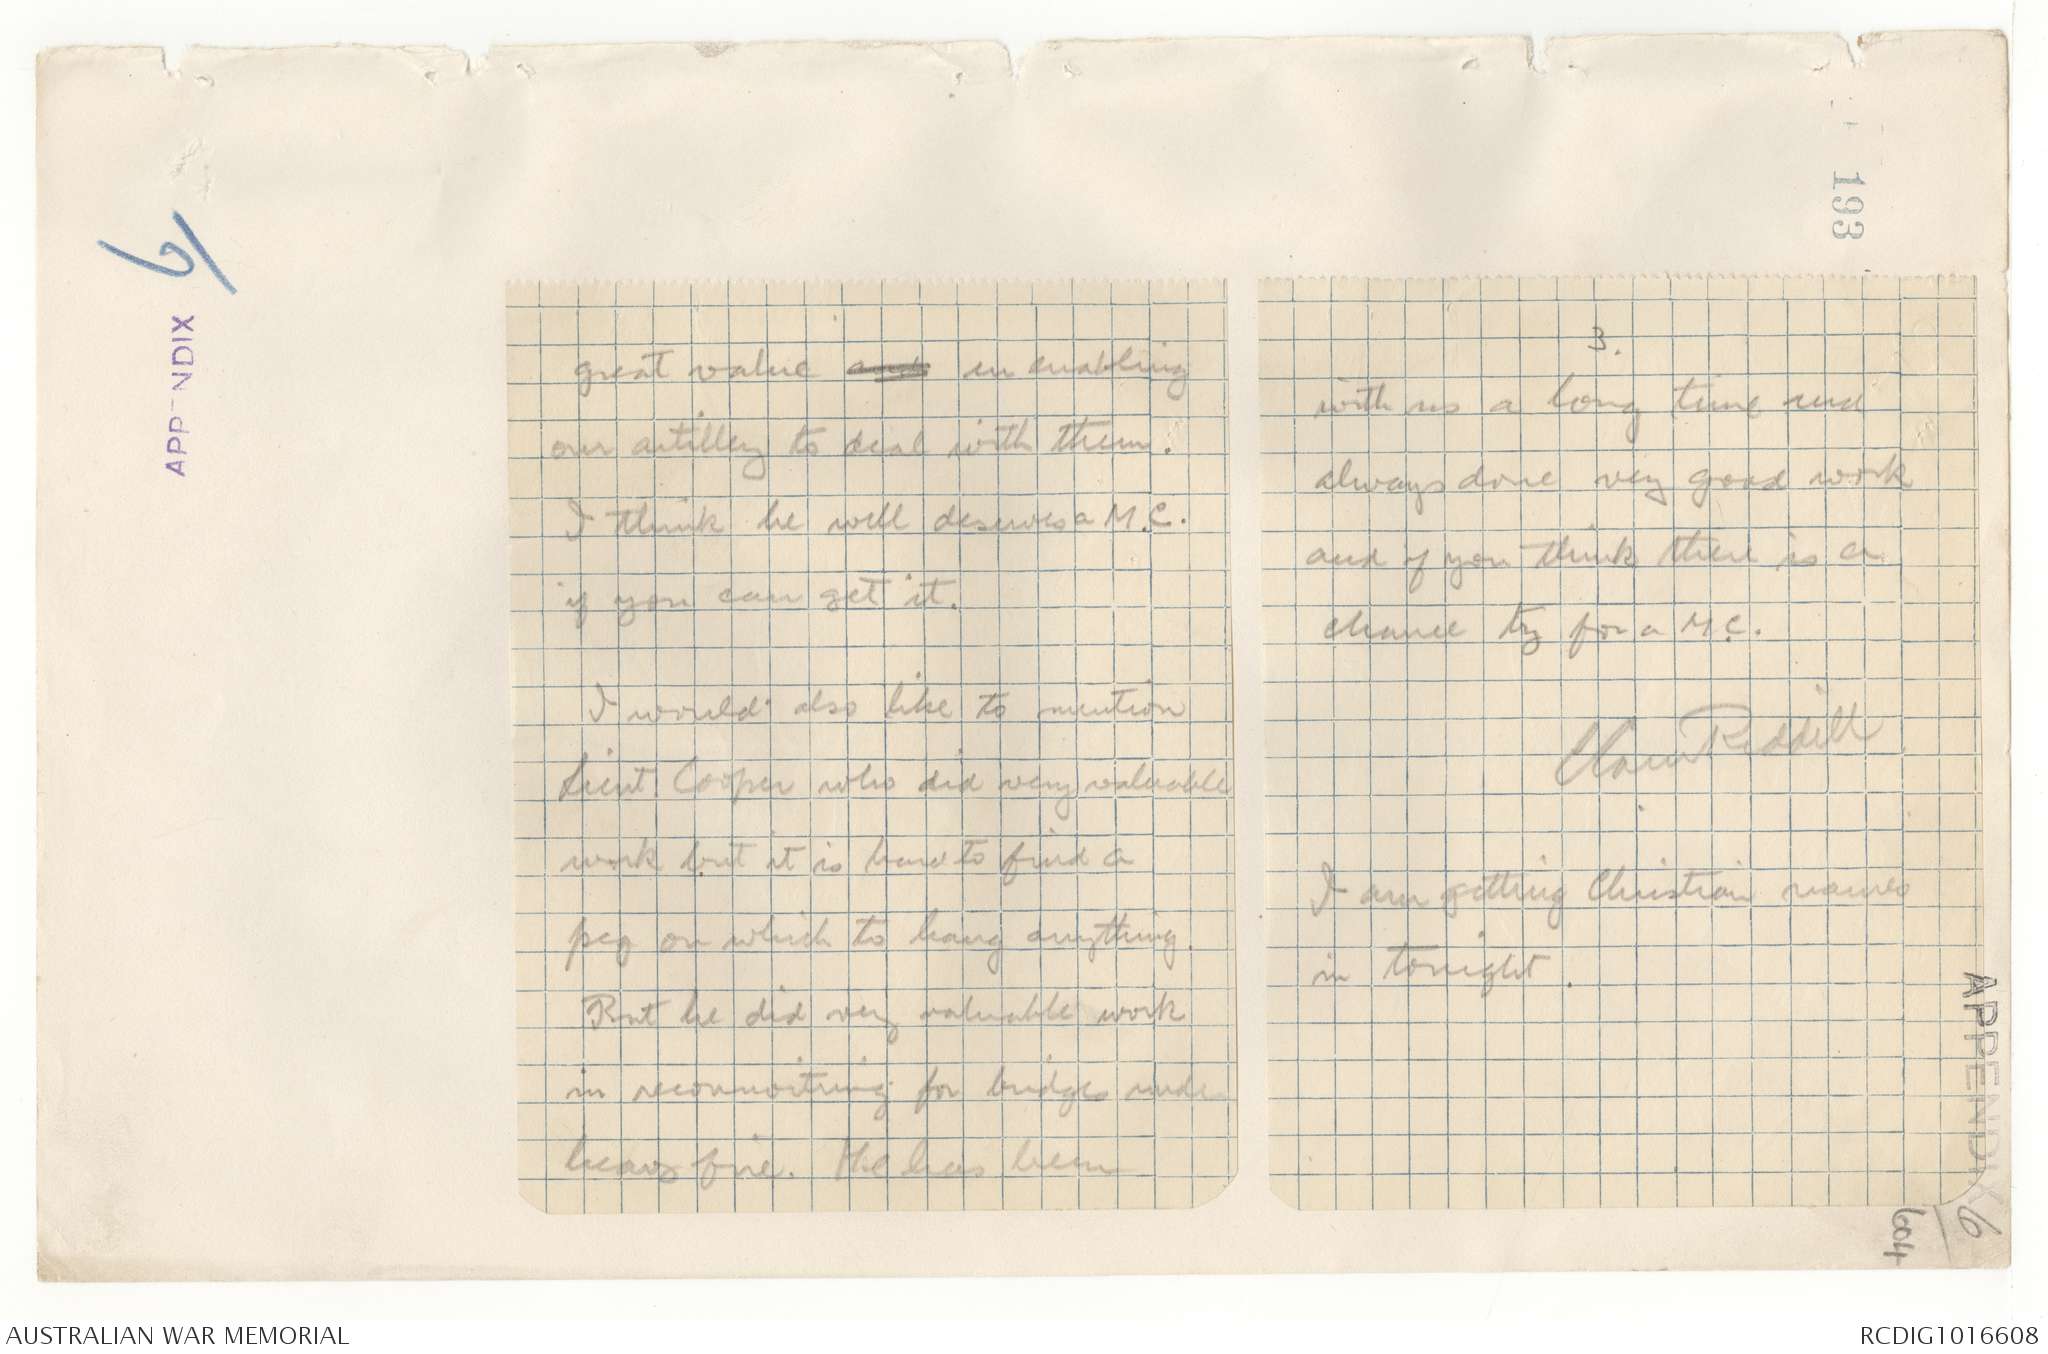 193
6/
APPENDIX
great value and in enabling
our artillery to deal with them.
I think he well deserves a M.C.
if you can get it.
I would also like to mention
Lieut. Cooper who did very valuable
work but it is hard to find a
peg on which to hang anything.
But he did very valuable work
in reconnoitring for bridges under
heavy fire. He has been
3.
with us a long time and
always done very good work
and if you think there is a
chance try for a M.C.
Riddell
I am getting Christian names
in tonight.
APPENDIX 6
604
AUSTRALIAN WAR MEMORIAL
RCDIG1016608